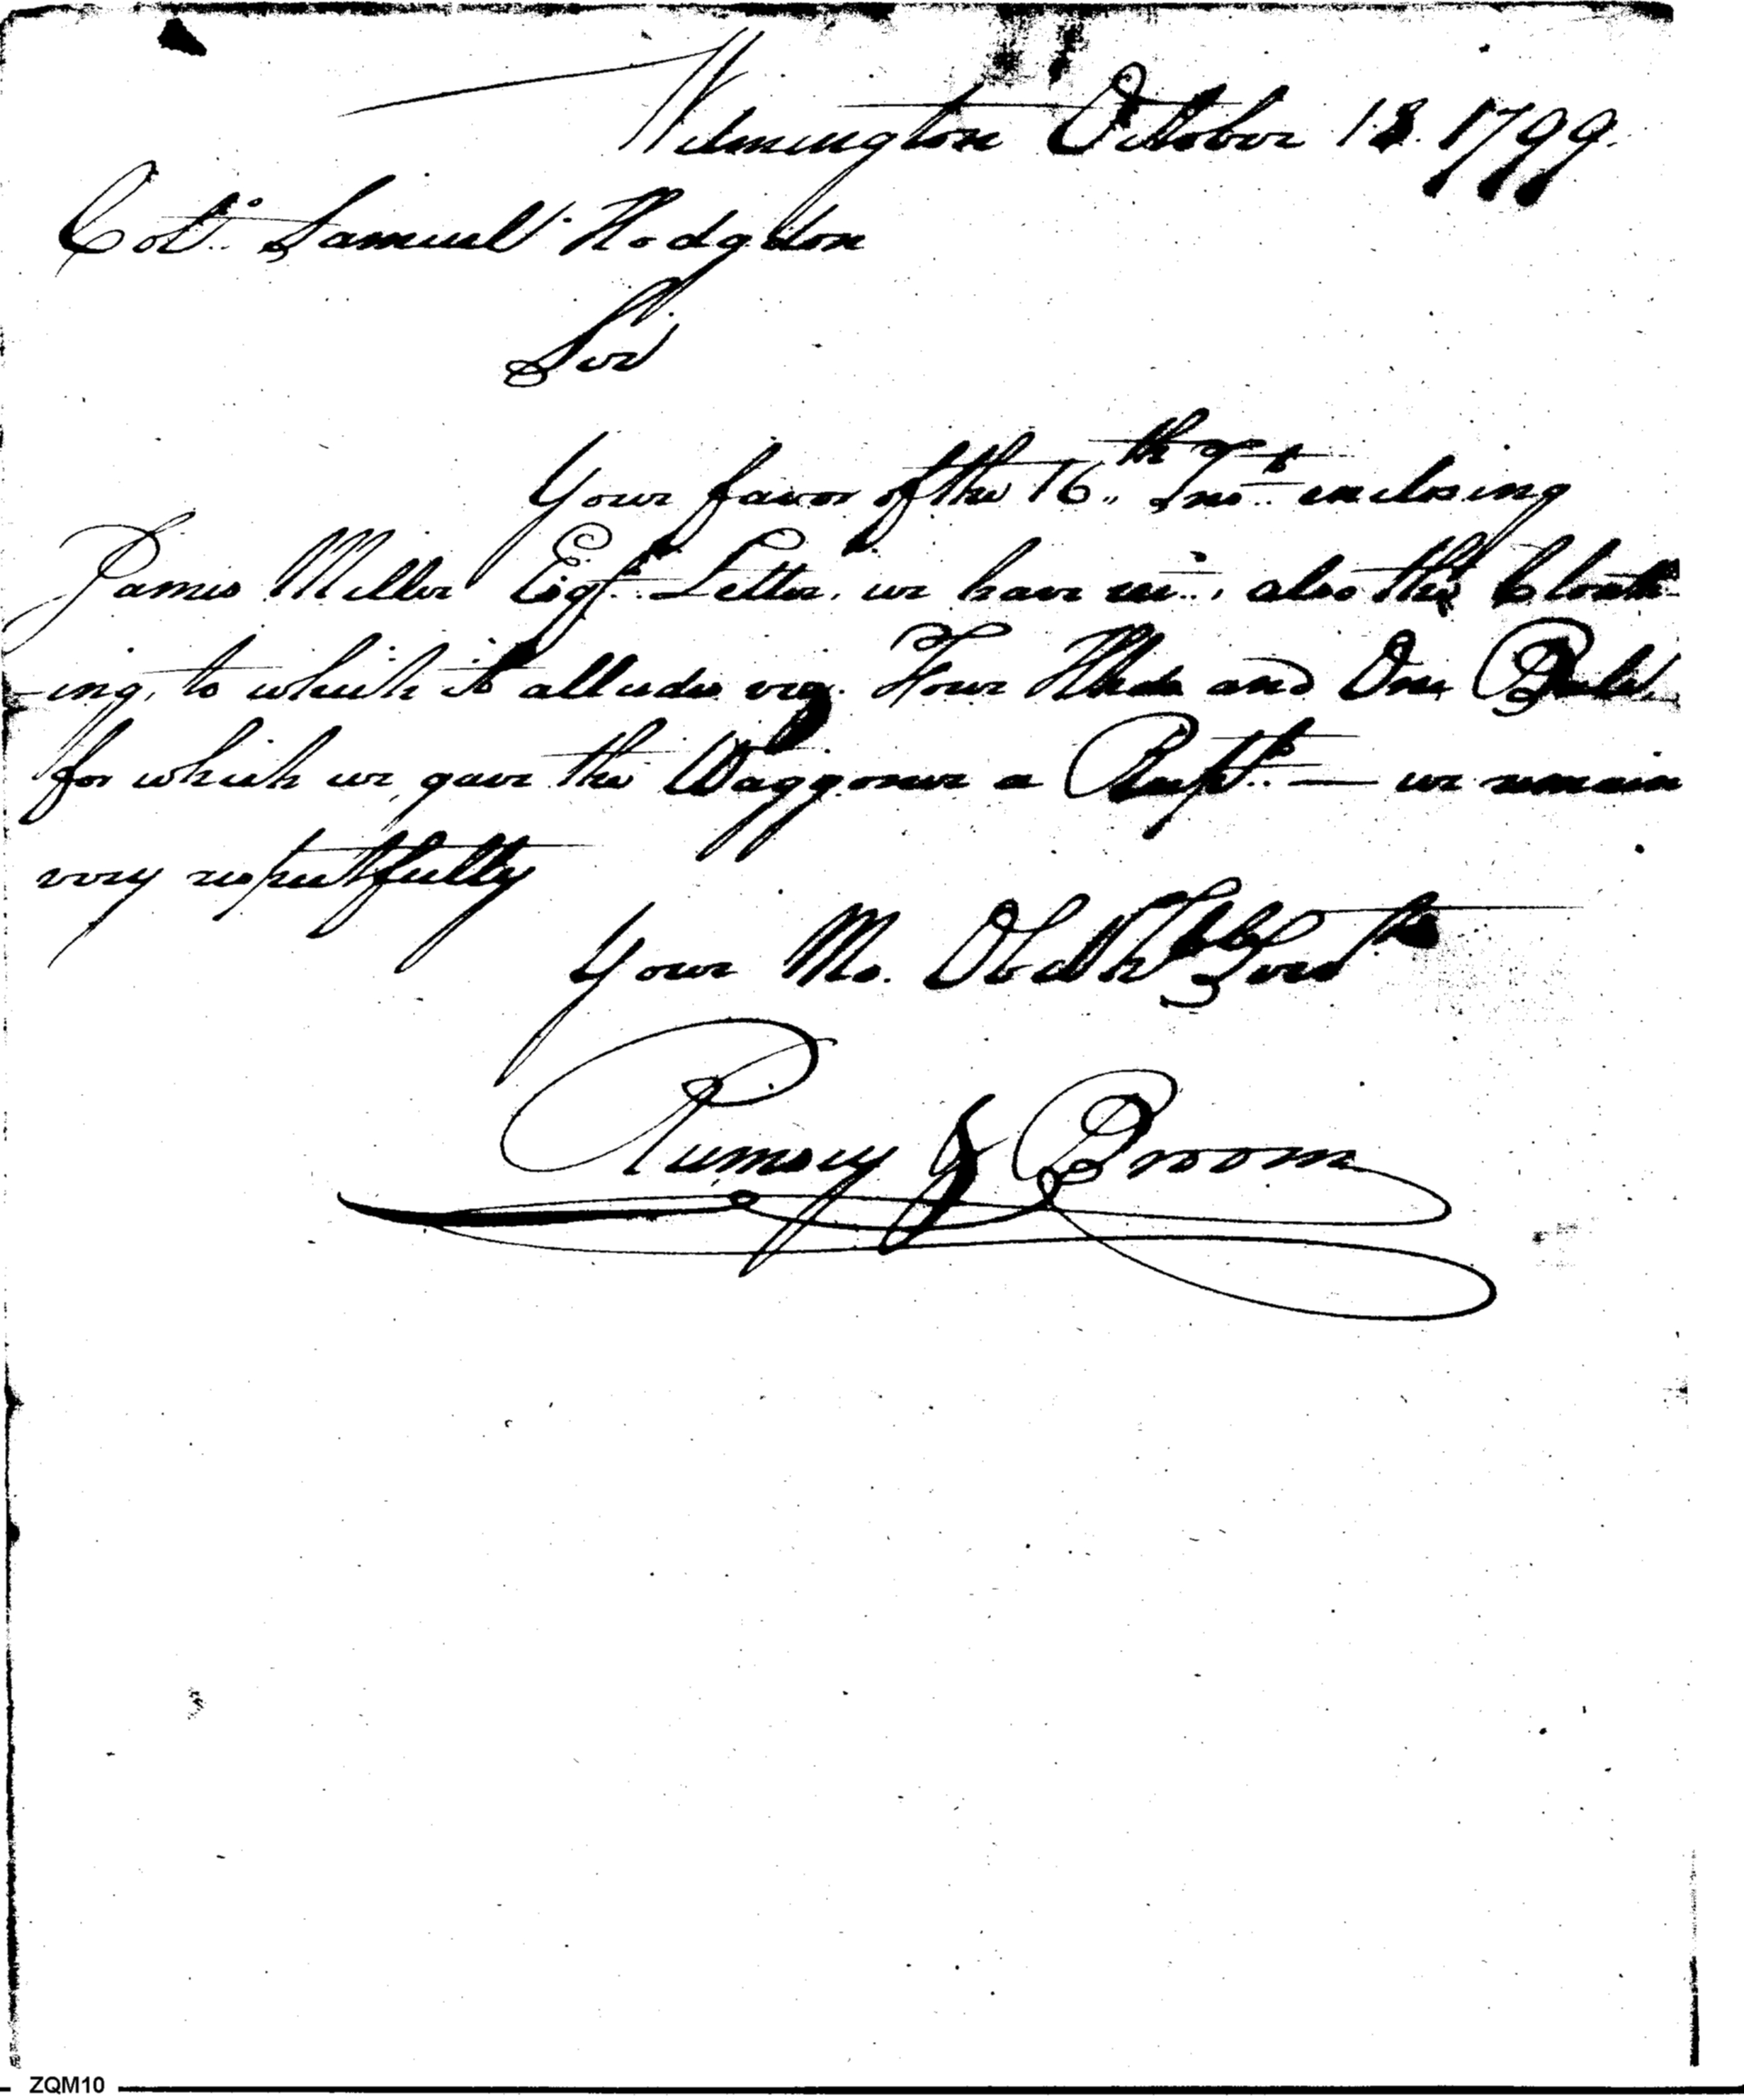 Wilmington October 18. 1799.
Col.º Samuel Hodgdon
Sir
Your favor of the 16th Inst. enclosing
James Miller Esqr. Letter, we have rec., also the Cloath
ing, to which it alludes viz. Four Hhds and One Bale
for which we gave the Waggoner a Recpt. — we remain
very respectfully
Your Mo. Obedt. Hble Servts
Rumsey & Broom
ZQM10